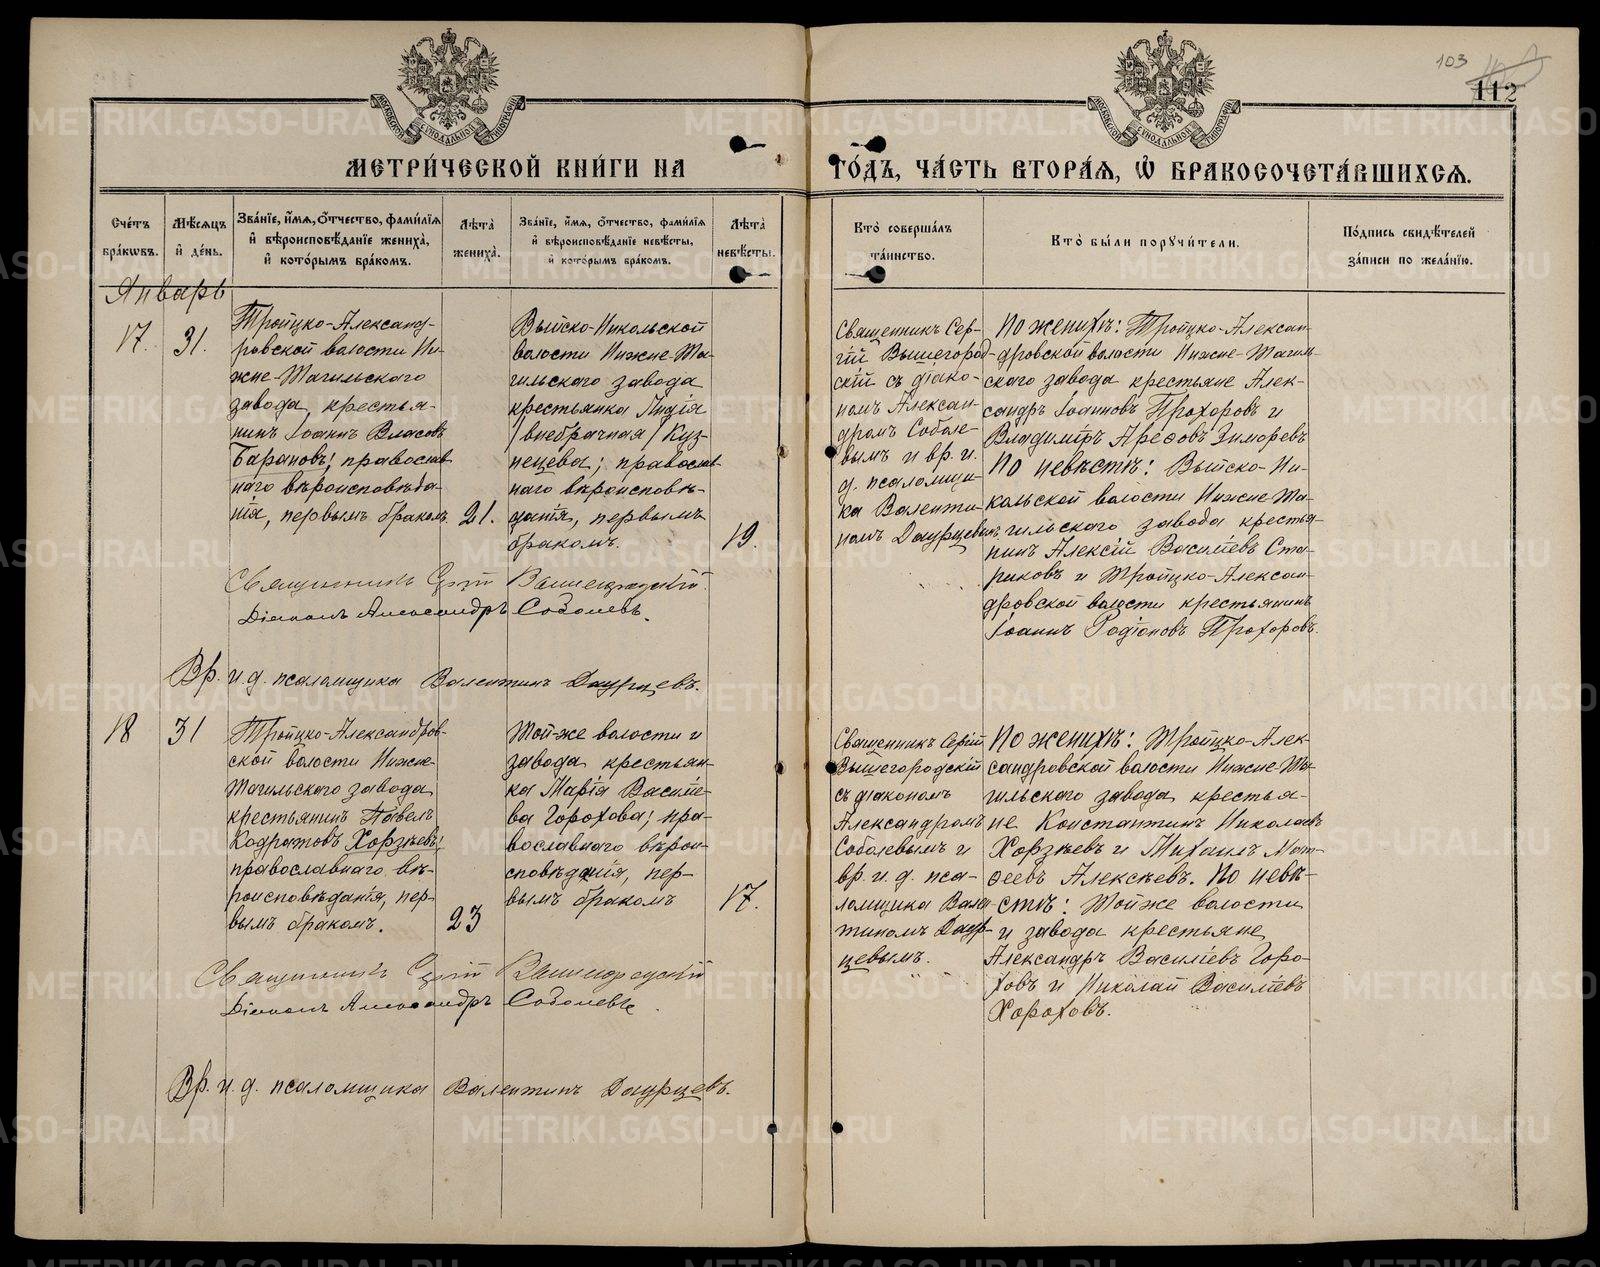 103
112
МОСКОВСКОЙ СѴНОДАЛЬНОЙ ТИПОГРАФІИ
МОСКОВСКОЙ СѴНОДАЛЬНОЙ ТИПОГРАФІИ
МЕТРИ́ЧЕСКОЙ КНИ́ГИ НА
ГО́ДЪ, ЧА́СТЬ ВТОРА́Ѧ, Ѽ БРАКОСОЧЕТА́ВШИХСѦ.
Сче́тъ бра́кѡвъ.
Мѣ́сѧцъ и҆ де́нь.
Зва́нїе, и҆́мѧ, ѻ҆́тчество, фами́лїѧ
и҆ вѣроисповѣ́данїе жениха̀,
и҆ кото́рымъ бра́комъ.
Лѣ́та жениха̀.
Зва́нїе, и҆́мѧ, ѻ҆́тчество, фами́лїѧ
и҆ вѣроисповѣ́данїе невѣ́сты,
и҆ кото́рымъ бра́комъ.
Лѣ́та невѣ́сты.
Кто̀ соверша́лъ
та́инство.
Кто̀ бы́ли порꙋчи́тели.
По́дпись свидѣ́телей
за́писи по жела́нїю.
Январь
17.
31.
Троицко-Александ-
ровской волости Ни-
жне-Тагильского
завода, крестья-
нинъ Іоаннъ Власовъ
Барановъ; православ
наго вѣроисповѣда-
нія, первымъ бракомъ.
21.
Выйско-Никольской
волости Нижне-Та-
гильского завода
крестьянка Лидія
/внебрачная/ Куз-
нецова; православ-
наго вѣроисповѣ-
данія, первымъ
бракомъ.
19.
Священникъ Сер-
гій Вышегород-
скій съ діако-
номъ Алексан-
дромъ Соболе-
вымъ и вр. и.
д. псаломщи-
ка Валенти-
номъ Даурцевымъ.
По женихѣ: Троицко-Алексан-
дровской волости Нижне-Тагиль-
ского завода крестьяне Алек-
сандръ Іоанновъ Прохоровъ и
Владиміръ Арефовъ Зиморевъ
По невѣстѣ: Выйско-Ни-
кольской волости Нижне-Та-
гильского завода крестья-
нинъ Алексій Василіевъ Ста-
риковъ и Троицко-Алексан-
дровской волости крестьянинъ
Іоаннъ Родіоновъ Прохоровъ.
Священникъ Сергій Вышегородскій.
Діаконъ Александръ Соболевъ.
Вр. и. д. псаломщика Валентинъ Даурцевъ.
18
31
Троицко-Александров-
ской волости Нижне-
Тагильского завода
крестьянинъ Павелъ
Кодратовъ Хорзѣевъ;
православнаго вѣ-
роисповѣданія, пер-
вымъ бракомъ.
23
Той-же волости и
завода крестьян-
ка Марія Василіе-
ва Горохова; пра-
вославнаго вѣрои-
сповѣданія, пер-
вымъ бракомъ
17.
Священникъ Сергій
Вышегородскій
съ діакономъ
Александромъ
Соболевымъ и
вр. и. д. пса-
ломщика Вален-
тиномъ Даур-
цевымъ.
По женихѣ: Троицко-Алек-
сандровской волости Нижне-Та-
гильского завода крестья-
не Константинъ Николаевъ
Хорзѣевъ и Михаилъ Мат-
ѳеевъ Алексѣевъ. По невѣ-
стѣ: Той же волости
и завода крестьяне
Александръ Василіевъ Горо-
ховъ и Николай Василіевъ
Хороховъ.
Священникъ Сергій Вышегородскій
Діаконъ Александръ Соболевъ.
Вр. и. д. псаломщика Валентинъ Даурцевъ.
METRIKI.GASO-URAL.RU